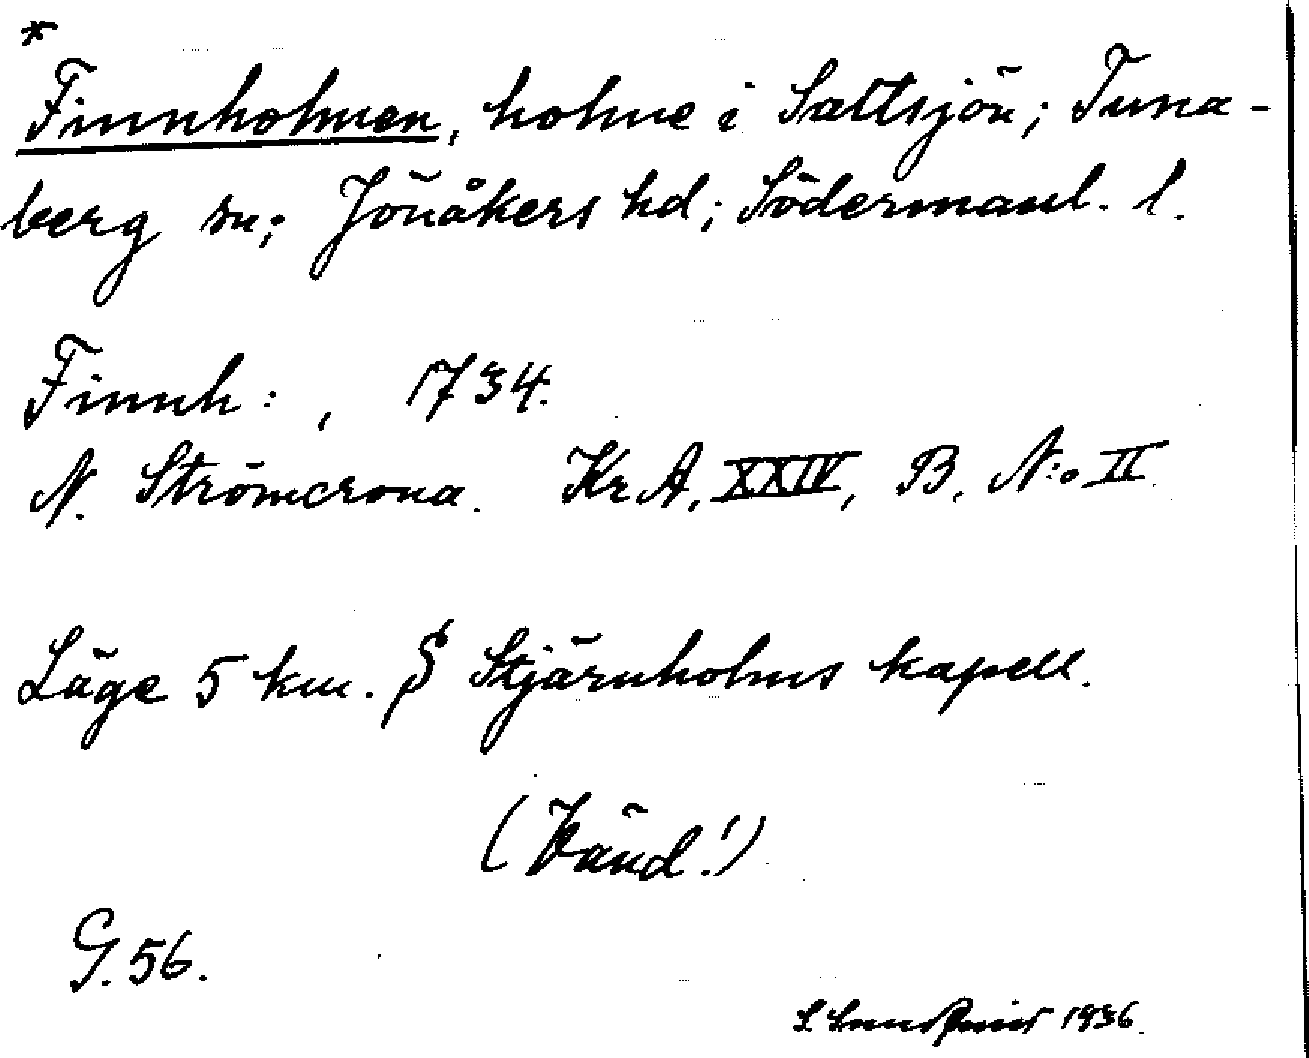 *
Finnholmen, holme i Saltsjön; Tuna-
berg sn; Jönåkers hd; Södermanl. l.
Finnh: , 1734.
N. Strömcrona. Kr A, XXIV, B. N:o II.
Läge 5 km. S Stjärnholms kapell.
(Vänd!)
G. 56.
1936.